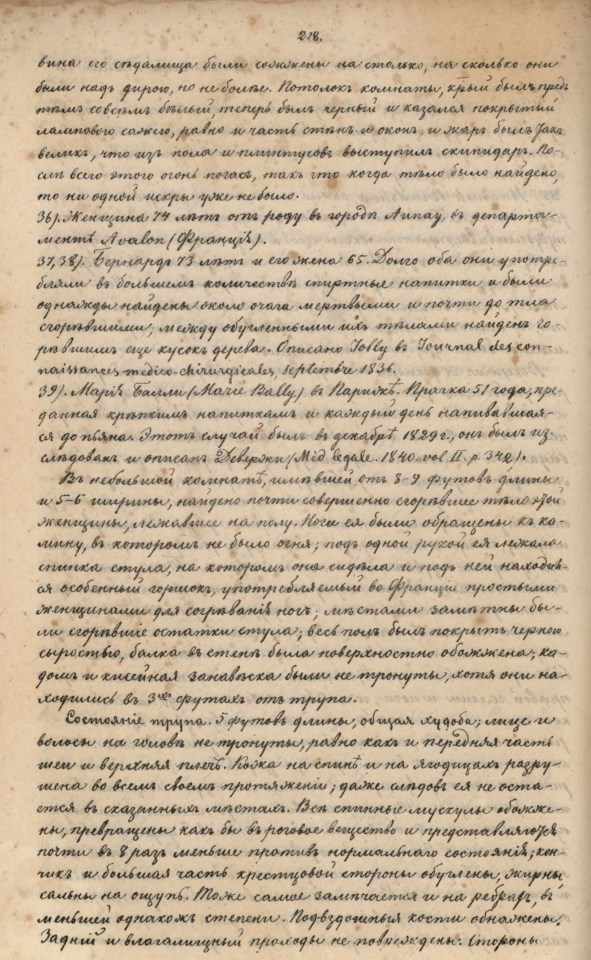 218.
вина его сѣдалища были сожжены на столько, на сколько они
были надъ дирою, но не болѣе. Потолокъ комнаты, кр̃ый былъ предъ
тѣмъ совсѣмъ бѣлый, теперь былъ черный и казался покрытый
лампового сажею, равно и часть стѣнъ и оконъ, и жаръ былъ такъ
великъ, что изъ пола и плинтусовъ выступилъ скипидаръ. По-
слѣ всего этого огонь погасъ, такъ что когда тѣло было найдено,
то ни одной искры уже не было.
36). Женщина 74 лѣтъ отъ роду въ городѣ въ департа-
ментѣ Avalon (Франція).
37,38). Бернардъ 73 лѣтъ и его жена 65. Долго оба они употре-
бляли въ большемъ количествѣ спиртные напитки и были
однажды найдены около очага мертвыми и почти до тла
сгорѣвшими; между обугленными ихъ тѣлами найденъ го-
рѣвшимъ еще кусокъ дерева. Описано Jolly въ Journal des con-
naissances medico-chirurgicales, septembre 1836.
39). Марія Балли (Marie Bally) въ Парижѣ. Прачка 51 года, пре-
данная крѣпкимъ напиткамъ и каждый день напивавшая-
ся до пьяна. Этотъ случай былъ въ декабрѣ 1829 г., онъ былъ из-
слѣдованъ и описанъ Девержи (Méd légale. 1840. vol II. p. 342).
Въ небольшой комнатѣ, имѣвшей отъ 8-9 футовъ длины
и 5-6 ширины, найдено почти совершенно сгорѣвшее тѣло этой
женщины, лежавшее на полу. Ноги ея были обращены къ ка-
мину, въ которомъ не было огня; подъ одной рукой ея лежала
спинка стула, на которомъ она сидѣла и подъ ней находил-
ся особенный горшокъ, употребляемый во Франціи простыми
женщинами для согрѣванія ногъ; мѣстами замѣтны бы-
ли сгорѣвшіе остатки стула; весь полъ былъ покрытъ черною
сыростью, балка въ стенѣ была поверхностно обожжена;
и кисейная занавѣска были не тронуты, хотя они на-
ходились въ 3хъ футахъ отъ трупа.
Состояніе трупа. 5 футовъ длины, общая худоба; лице и
волосы на головѣ не тронуты, равно какъ и передняя часть
шеи и верхняя плечъ. Кожа на спинѣ и на ягодицахъ разру-
шена во всемъ своемъ протяженіи; даже слѣдовъ ея не оста-
ется въ сказанныхъ мѣстахъ. Всѣ спинные мускулы обожже-
ны, превращены какъ бы въ роговое вещество и представляются
почти въ 8 разъ меньше противъ нормальнаго состоянія; кон-
чикъ и большая часть крестцовой стороны обуглены, жирны
сальны на ощупь. Тоже самое замѣчается и на ребрахъ, въ
меньшей однакожъ степени. Подвздошныя кости обнажены.
Задній и влагалищный проходы не повреждены. Стороны